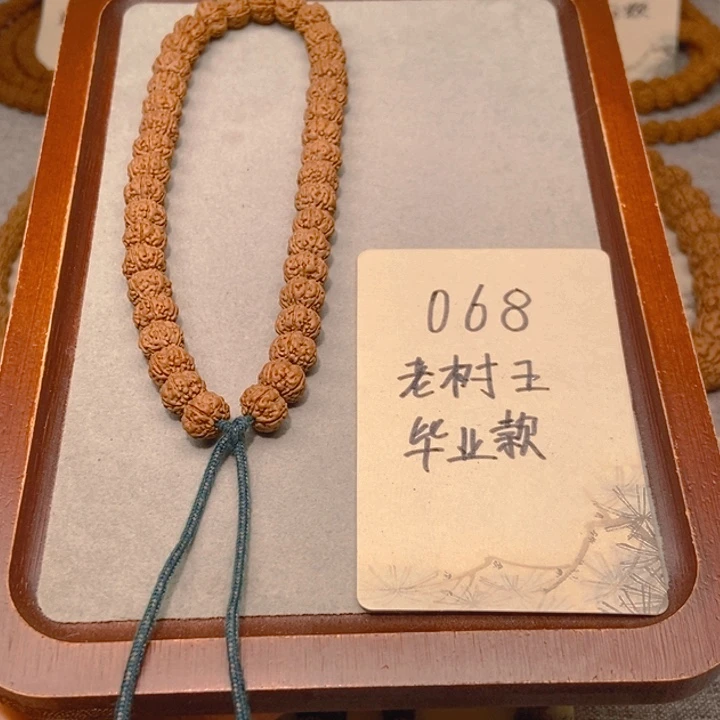 068
老树王
毕业款
款